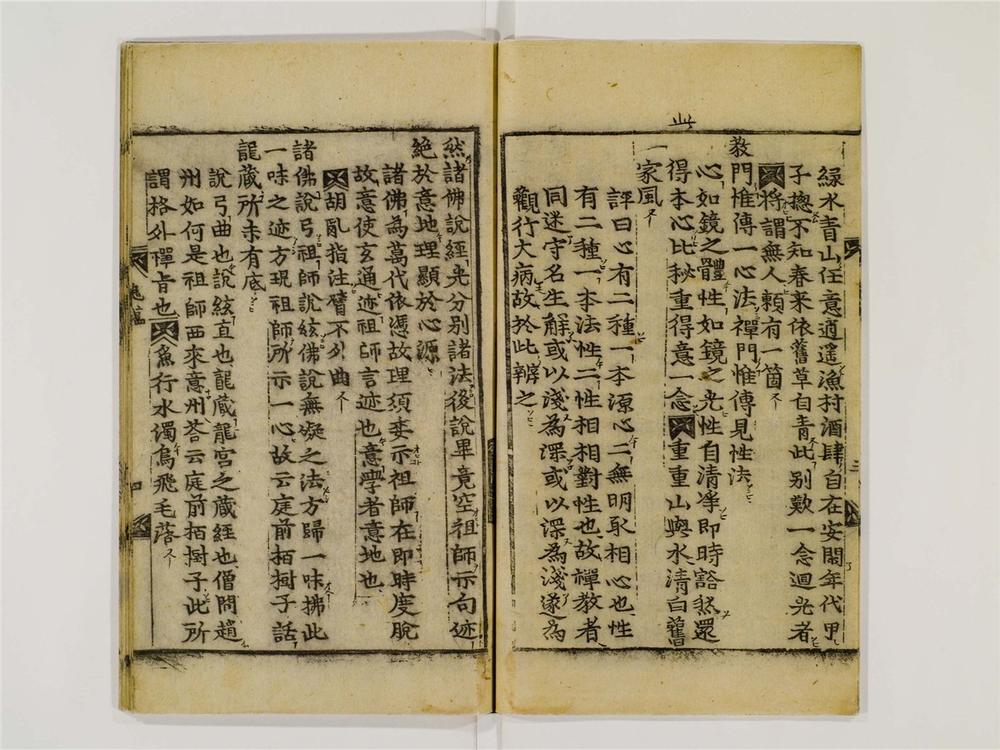 此
緑水青山任意逍遥漁村酒肆自在安閑年代甲
子摠不知春来依舊草自青此別歎一念迴光者
将謂無人頼有一箇
教門惟傳一心法禪門惟傳見性法
心如鏡之體性如鏡之光性自清淨即時豁然還
得本心比秘重得意一念重重山與水清白舊
一家風
評曰心有二種一本源心二無明取相心也性
有二種一本法性二性相相對性也故禪教者
同迷守名生解或以淺為深或以深為淺遂為
觀行大病故於此辨之
然諸佛說經先分別諸法後說畢竟空祖師示句迹
絶於意地理顯於心源
諸佛為萬代依憑故理須委示祖師在即時度脫
故意使玄通迹祖師言迹也意學者意地也
胡亂指注臂不外曲
諸佛說弓祖師說絃佛說無礙之法方歸一味拂此
一味之迹方現祖師所示一心故云庭前栢樹子話
龍藏所未有底
說弓曲也說絃直也龍藏龍宮之藏經也僧問趙
州如何是祖師西來意州荅云庭前栢樹子此所
謂格外禪旨也魚行水濁鳥飛毛落
四